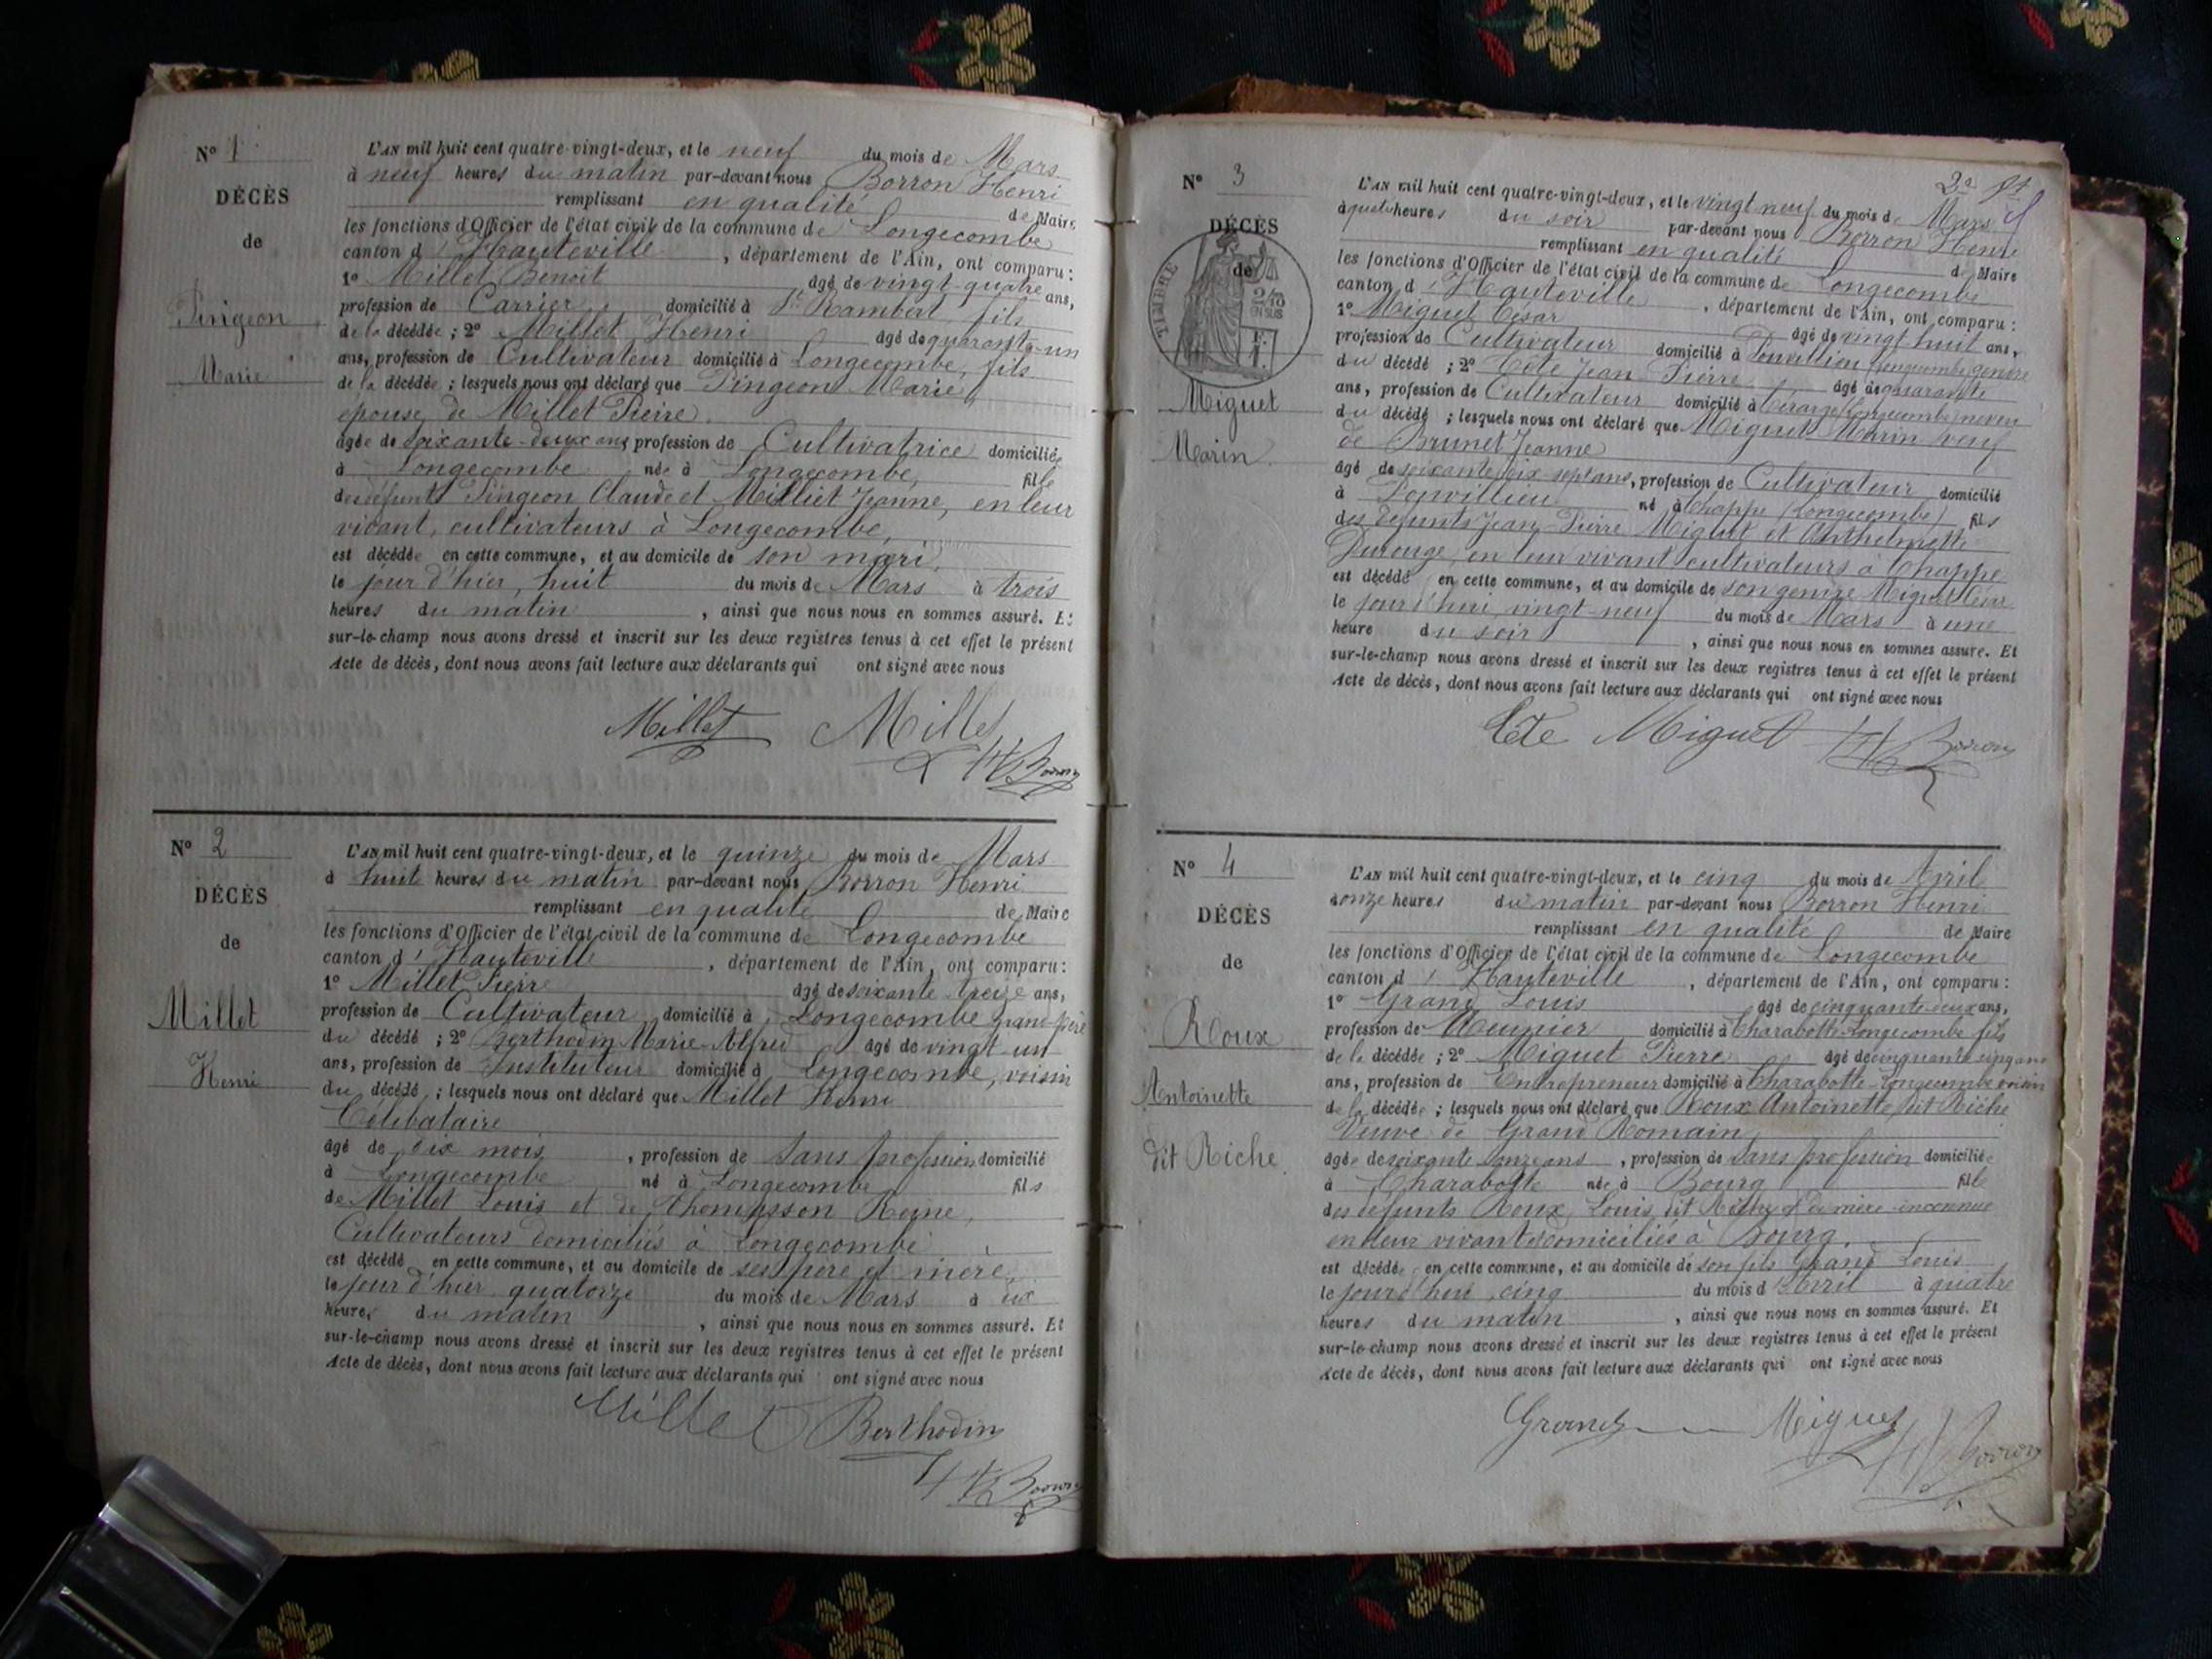 Nº 1
DÉCÈS
de
Pingeon
Marie
L'AN mil huit cent quatre-vingt-deux, et le neuf du mois de Mars
à neuf heures du matin par-devant nous Borron Henri
remplissant en qualité de Maire
les fonctions d'Officier de l'état civil de la commune de Longecombe
canton d'Hauteville, département de l'Ain, ont comparu :
1º Millet Benoit âgé de vingt-quatre ans,
profession de Carrier, domicilié à St Rambert fils
de la décédée ; 2º Millet Henri âgé de quarante-un
ans, profession de Cultivateur domicilié à Longecombe, fils
de la décédée ; lesquels nous ont déclaré que Pingeon Marie
épouse de Millet Pierre.
âgée de soixante-deux ans profession de Cultivatrice domiciliée
à Longecombe née à Longecombe, fille
des défunts Pingeon Claude et Milliet Jeanne, en leur
vivant, cultivateurs à Longecombe,
est décédée en cette commune, et au domicile de son mari,
le jour d'hier, huit du mois de Mars à trois
heures du matin, ainsi que nous nous en sommes assuré. Et
sur-le-champ nous avons dressé et inscrit sur les deux registres tenus à cet effet le présent
Acte de décès, dont nous avons fait lecture aux déclarants qui ont signé avec nous
Millet Millet
H Borron
Nº 2
DÉCÈS
de
Millet
Henri
L'AN mil huit cent quatre-vingt-deux, et le quinze du mois de Mars
à huit heures du matin par-devant nous Borron Henri
remplissant en qualité de Maire
les fonctions d'Officier de l'état civil de la commune de Longecombe
canton d'Hauteville, département de l'Ain, ont comparu :
1º Millet Pierre âgé de soixante treize ans,
profession de Cultivateur domicilié à Longecombe grand-père
du décédé ; 2º Berthodin Marie-Alfred âgé de vingt-un
ans, profession de Instituteur domicilié à Longecombe, voisin
du décédé ; lesquels nous ont déclaré que Millet Henri
Célibataire
âgé de dix mois, profession de sans profession domicilié
à Longecombe né à Longecombe fils
de Millet Louis et de Reine,
Cultivateurs domiciliés à Longecombe
est décédé en cette commune, et au domicile de ses père et mère,
le jour d'hier quatorze du mois de Mars à
heures du matin, ainsi que nous nous en sommes assuré. Et
sur-le-champ nous avons dressé et inscrit sur les deux registres tenus à cet effet le présent
Acte de décès, dont nous avons fait lecture aux déclarants qui ont signé avec nous
Millet Berthodin
H Borron
2e
Nº 3
DÉCÈS
de
TIMBRE
2/10
EN SUS
Miguet
Marin
L'AN mil huit cent quatre-vingt-deux, et le vingt neuf du mois de Mars
heures du soir par-devant nous Borron Henri
remplissant en qualité de Maire
les fonctions d'Officier de l'état civil de la commune de Longecombe
canton d'Hauteville, département de l'Ain, ont comparu :
1º Miguet César âgé de vingt huit ans,
profession de Cultivateur domicilié à Longecombe gendre
du décédé ; 2º Tête Jean Pierre âgé de quarante
ans, profession de Cultivateur domicilié à Longecombe neveu
du décédé ; lesquels nous ont déclaré que Miguet Marin veuf
de Brunet Jeanne
âgé de soixante dix sept ans, profession de Cultivateur domicilié
à né à Chappe (Longecombe) fils
des défunts Jean-Pierre Miguet et Anthelmette
en leur vivant cultivateurs à Chappe
est décédé en cette commune, et au domicile de son gendre Miguet César
le jourd'hui vingt-neuf du mois de Mars à une
heure du soir, ainsi que nous nous en sommes assuré. Et
sur-le-champ nous avons dressé et inscrit sur les deux registres tenus à cet effet le présent
Acte de décès, dont nous avons fait lecture aux déclarants qui ont signé avec nous
Tête Miguet H Borron
Nº 4
DÉCÈS
de
Roux
Antoinette
dit Riche
L'AN mil huit cent quatre-vingt-deux, et le cinq du mois de Avril
à onze heures du matin par-devant nous Borron Henri
remplissant en qualité de Maire
les fonctions d'Officier de l'état civil de la commune de Longecombe
canton d'Hauteville, département de l'Ain, ont comparu :
1º Grand Louis âgé de cinquante-deux ans,
profession de Meunier domicilié à Charabotte-Longecombe fils
de la décédée ; 2º Miguet Pierre âgé de cinquante cinq ans
ans, profession de Entrepreneur domicilié à Charabotte-Longecombe voisin
de la décédée ; lesquels nous ont déclaré que Roux Antoinette dit Riche
Veuve de Grand Romain
âgée de soixante onze ans, profession de sans profession domiciliée
à Charabotte née à Bourg fille
des défunts Roux Louis, dit & de mère inconnue
en leur vivant domiciliés à Bourg.
est décédée en cette commune, et au domicile de son fils Grand Louis
le jourd'hui cinq du mois d'Avril à quatre
heures du matin, ainsi que nous nous en sommes assuré. Et
sur-le-champ nous avons dressé et inscrit sur les deux registres tenus à cet effet le présent
Acte de décès, dont nous avons fait lecture aux déclarants qui ont signé avec nous
Grand Miguet
H Borron